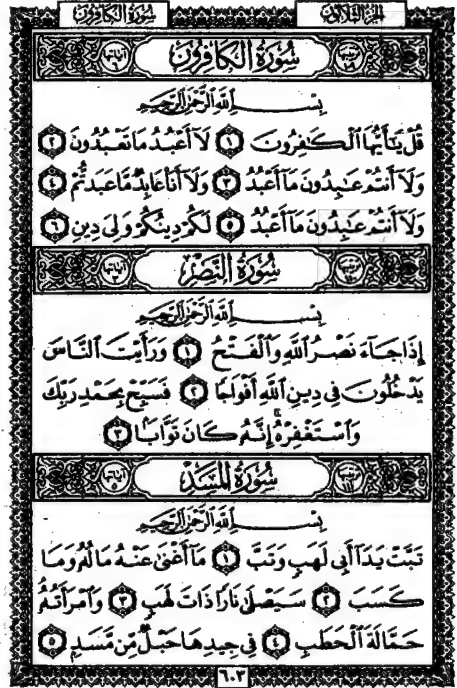 الجزء الثلاثون سورة الكافرون
سُورَةُ الكَافِرُونَ آياتها ٦
بِسْمِ اللَّهِ الرَّحْمَٰنِ الرَّحِيمِ
قُلْ يَٰٓأَيُّهَا ٱلْكَٰفِرُونَ ١ لَآ أَعْبُدُ مَا تَعْبُدُونَ ٢
وَلَآ أَنتُمْ عَٰبِدُونَ مَآ أَعْبُدُ ٣ وَلَآ أَنَا۠ عَابِدٌ مَّا عَبَدتُّمْ ٤
وَلَآ أَنتُمْ عَٰبِدُونَ مَآ أَعْبُدُ ٥ لَكُمْ دِينُكُمْ وَلِيَ دِينِ ٦
سُورَةُ النَّصْرِ آياتها ٣
بِسْمِ اللَّهِ الرَّحْمَٰنِ الرَّحِيمِ
إِذَا جَآءَ نَصْرُ ٱللَّهِ وَٱلْفَتْحُ ١ وَرَأَيْتَ ٱلنَّاسَ
يَدْخُلُونَ فِى دِينِ ٱللَّهِ أَفْوَاجًا ٢ فَسَبِّحْ بِحَمْدِ رَبِّكَ
وَٱسْتَغْفِرْهُ ۚ إِنَّهُۥ كَانَ تَوَّابًۢا ٣
سُورَةُ المَسَدِ آياتها ٥
بِسْمِ اللَّهِ الرَّحْمَٰنِ الرَّحِيمِ
تَبَّتْ يَدَآ أَبِى لَهَبٍ وَتَبَّ ١ مَآ أَغْنَىٰ عَنْهُ مَالُهُۥ وَمَا
كَسَبَ ٢ سَيَصْلَىٰ نَارًا ذَاتَ لَهَبٍ ٣ وَٱمْرَأَتُهُۥ
حَمَّالَةَ ٱلْحَطَبِ ٤ فِى جِيدِهَا حَبْلٌ مِّن مَّسَدٍۭ ٥
٦٠٣